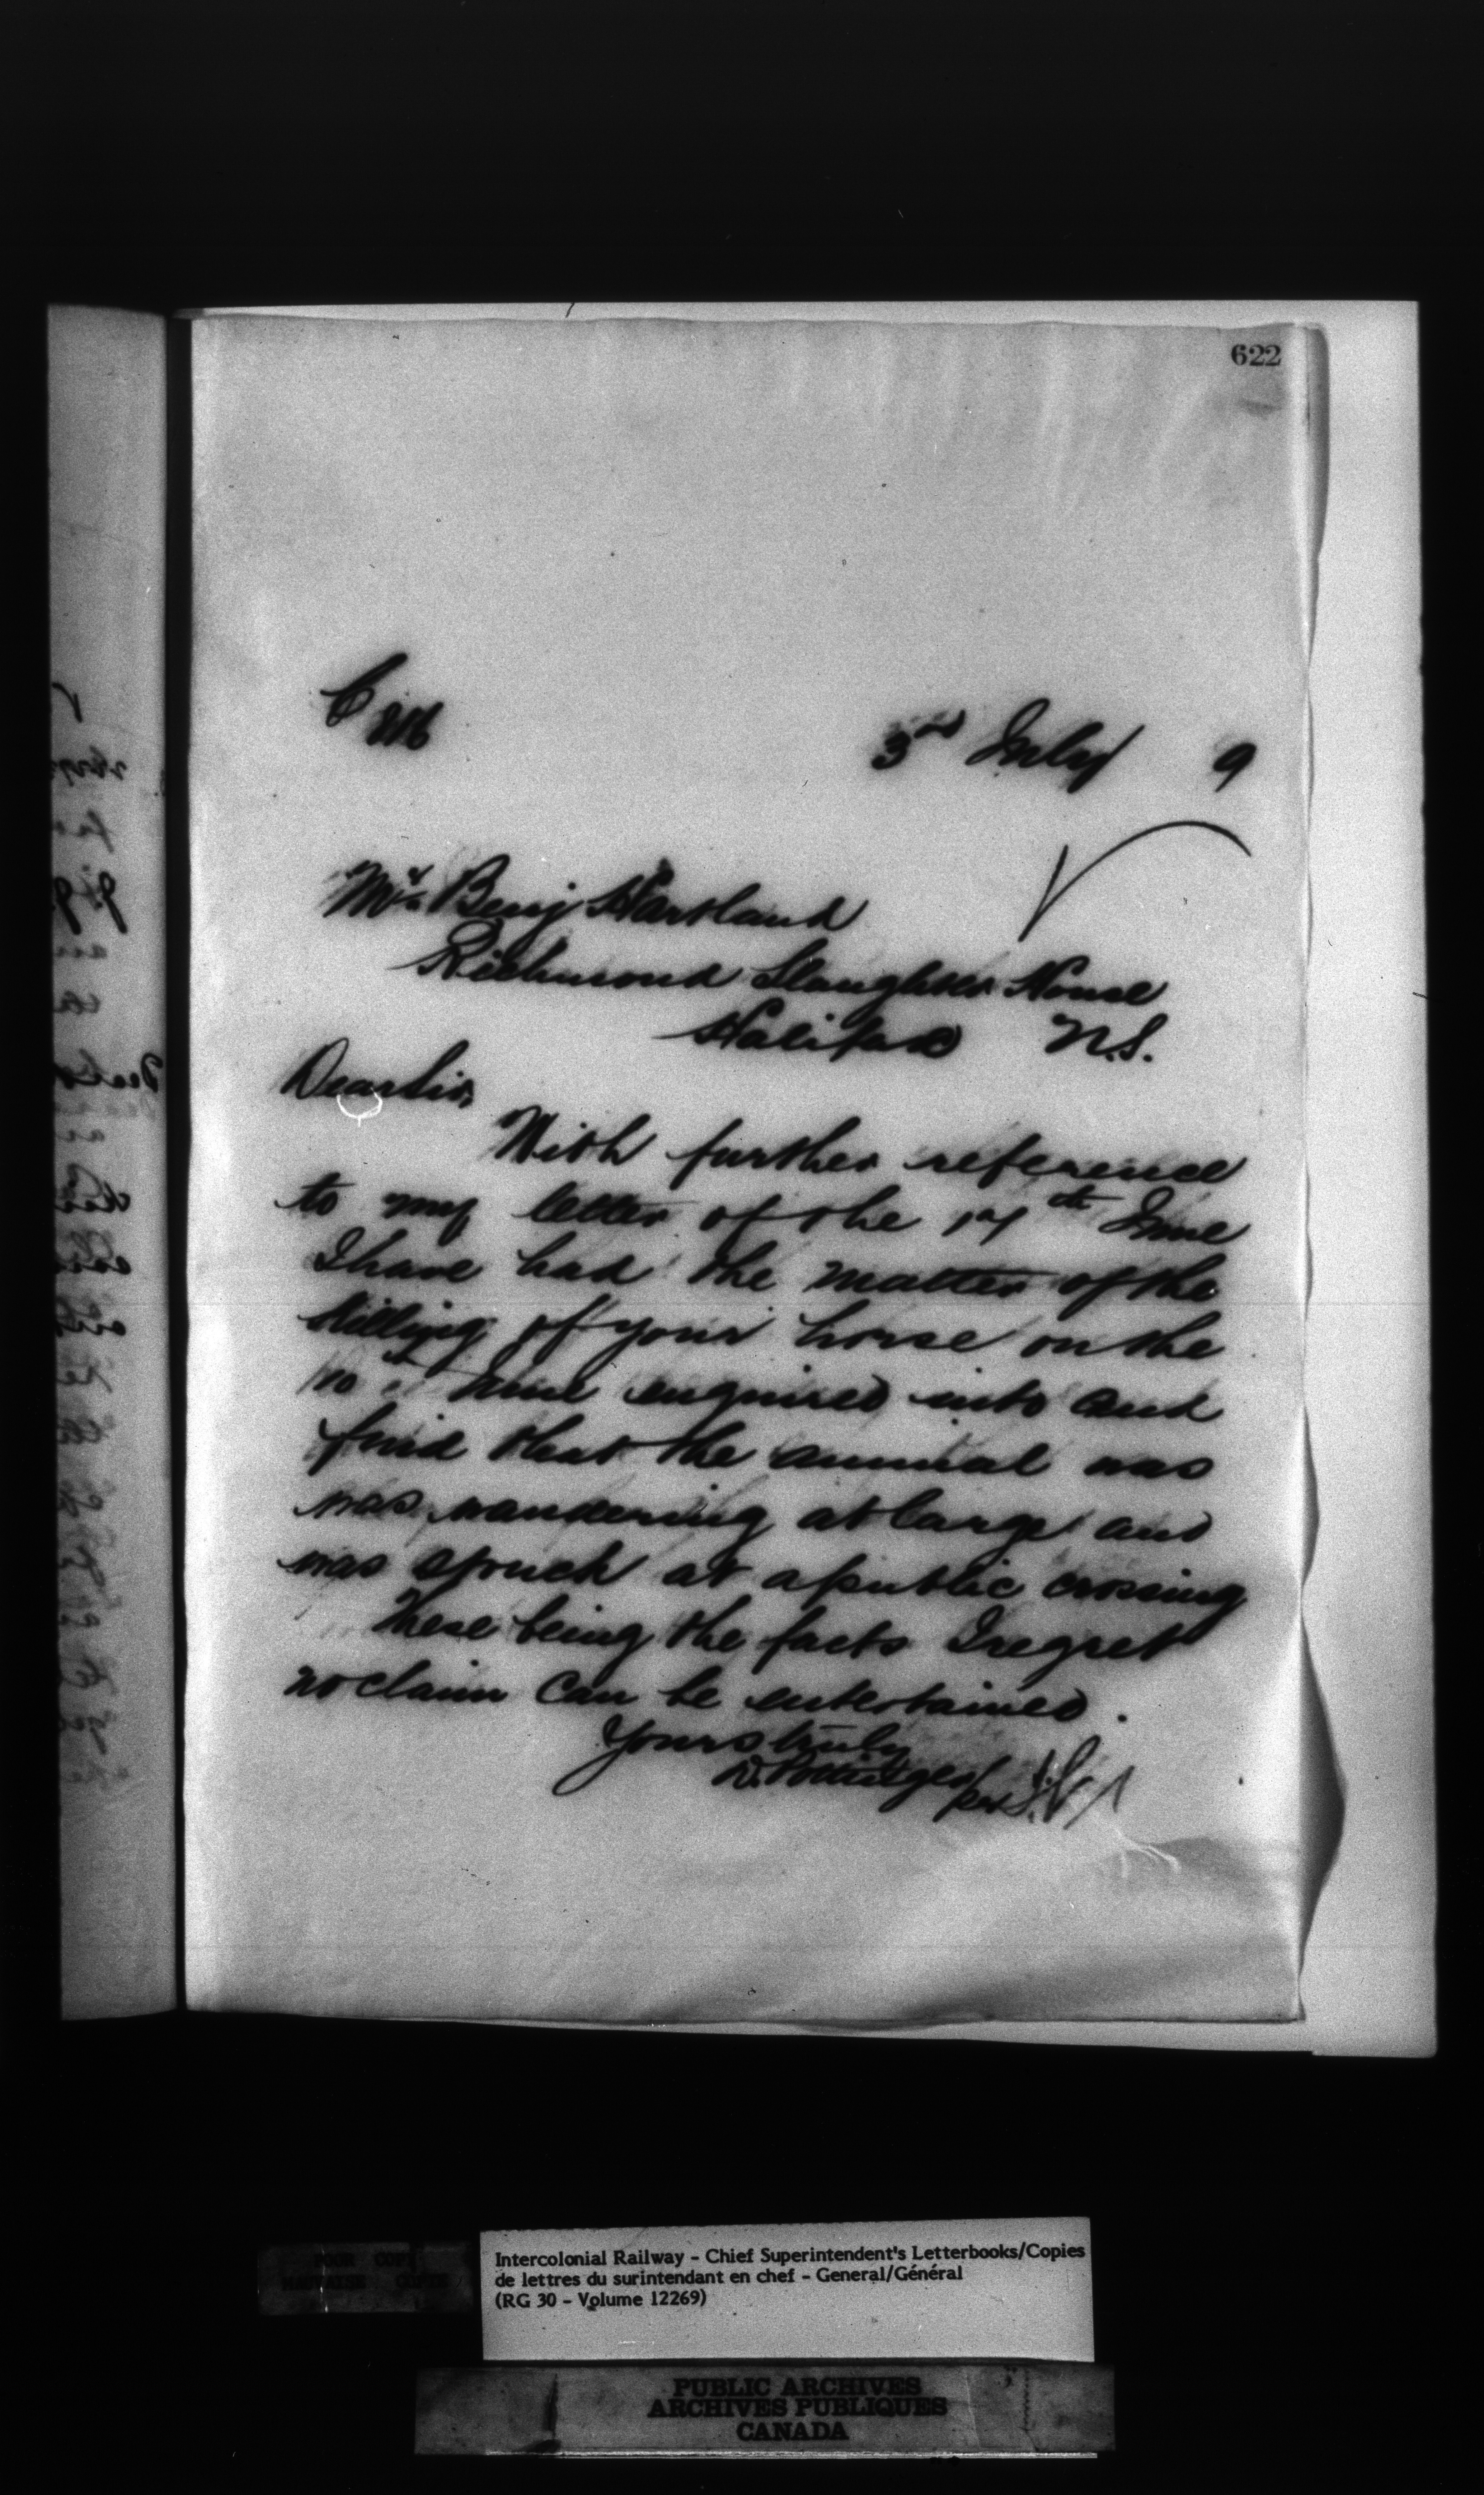 622
3rd July 9
Mr. Benj Hartland
Richmond Slaughter House
Halifax N.S.
Dear Sir,
With further reference
to my letter of the 17th June
I have had the matter of the
killing of your horse on the
10th June enquired into and
find that the animal was
was wandering at large and
was struck at a public crossing
These being the facts I regret
no claim can be entertained.
Yours truly
D. Pottinger
per
Intercolonial Railway - Chief Superintendent's Letterbooks/Copies
de lettres du surintendant en chef - General/Général
(RG 30 - Volume 12269)
POOR COPY
MAUVAISE COPIE
PUBLIC ARCHIVES
ARCHIVES PUBLIQUES
CANADA